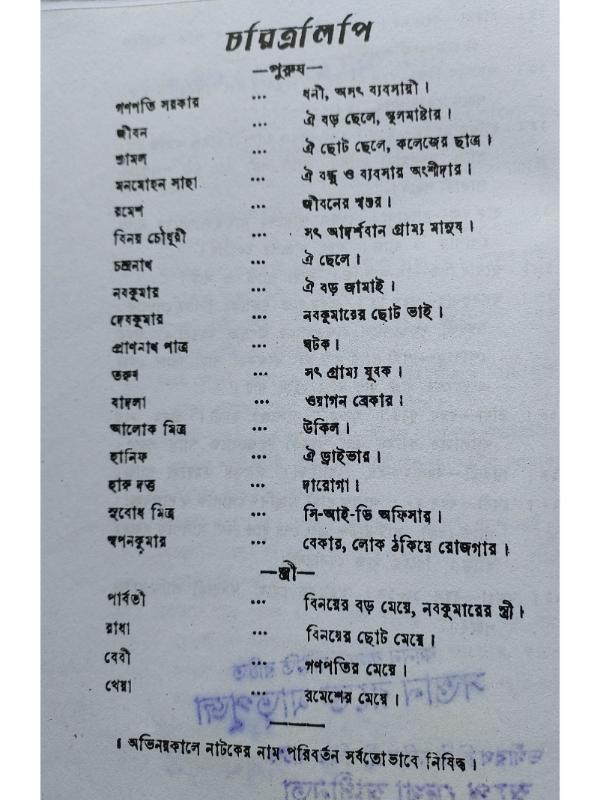 চরিত্রলিপি
—পুরুষ—
গণপতি সরকার ... ধনী, অসৎ ব্যবসায়ী।
জীবন ... ঐ বড় ছেলে, স্কুলমাষ্টার।
শ্যামল ... ঐ ছোট ছেলে, কলেজের ছাত্র।
মনমোহন সাহা ... ঐ বন্ধু ও ব্যবসার অংশীদার।
রমেশ ... জীবনের শ্বশুর।
বিনয় চৌধুরী ... সৎ আদর্শবান গ্রাম্য মানুষ।
চন্দ্রনাথ ... ঐ ছেলে।
নবকুমার ... ঐ বড় জামাই।
দেবকুমার ... নবকুমারের ছোট ভাই।
প্রাণনাথ পাত্র ... ঘটক।
তরুণ ... সৎ গ্রাম্য যুবক।
বাদলা ... ওয়াগন ব্রেকার।
আলোক মিত্র ... উকিল।
হানিফ ... ঐ ড্রাইভার।
হারু দত্ত ... দারোগা।
সুবোধ মিত্র ... সি-আই-ডি অফিসার।
স্বপনকুমার ... বেকার, লোক ঠকিয়ে রোজগার।
—স্ত্রী—
পার্বতী ... বিনয়ের বড় মেয়ে, নবকুমারের স্ত্রী।
রাধা ... বিনয়ের ছোট মেয়ে।
বেবী ... গণপতির মেয়ে।
খেয়া ... রমেশের মেয়ে।
। অভিনয়কালে নাটকের নাম পরিবর্তন সর্বতোভাবে নিষিদ্ধ।